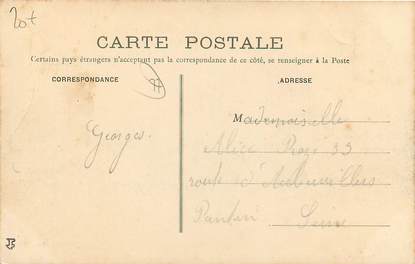 20+
CARTE POSTALE
Certains pays étrangers n'acceptant pas la correspondance de ce côté, se renseigner à la Poste
CORRESPONDANCE
ADRESSE
Georges.
Mademoiselle
Alice 33
route d'Aubervilliers
Pantin Seine